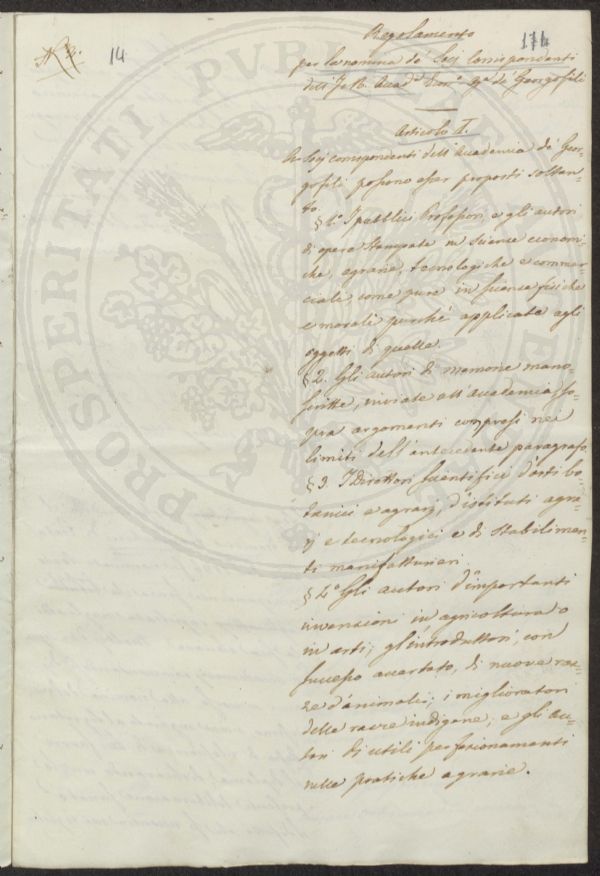 N. 2. 14
174
Regolamento
per la nomina de' Socj Corrispondenti
dell' I. e R. Accad.ª Econ.º Ag.ª de' Georgofili
Articolo I.
Socj corrispondenti dell'Accademia de' Geor-
gofili possono esser proposti soltan-
to.
§ 1.º I pubblici Professori, e gli autori
di opere stampate in scienze economi-
che, agrarie, tecnologiche e commer-
ciali come pure in scienze fisiche
e morali purché applicate agli
oggetti di quelle.
§ 2. Gli autori di memorie mano-
scritte, inviate all'Accademia, so-
pra argomenti compresi nei
limiti dell'antecedente paragrafo
§ 3. I Direttori scientifici d'orti bo-
tanici e agrarj, d'istituti agra-
rj e tecnologici e di stabilimen-
ti manifatturieri.
§ 4.º Gli autori d'importanti
invenzioni in agricoltura o
in arti; gl'introduttori, con
successo accertato, di nuove raz-
ze d'animali; i miglioratori
delle razze indigene; e gli au-
tori di utili perfezionamenti
nelle pratiche agrarie.
PROSPERITATI PUBLICAE